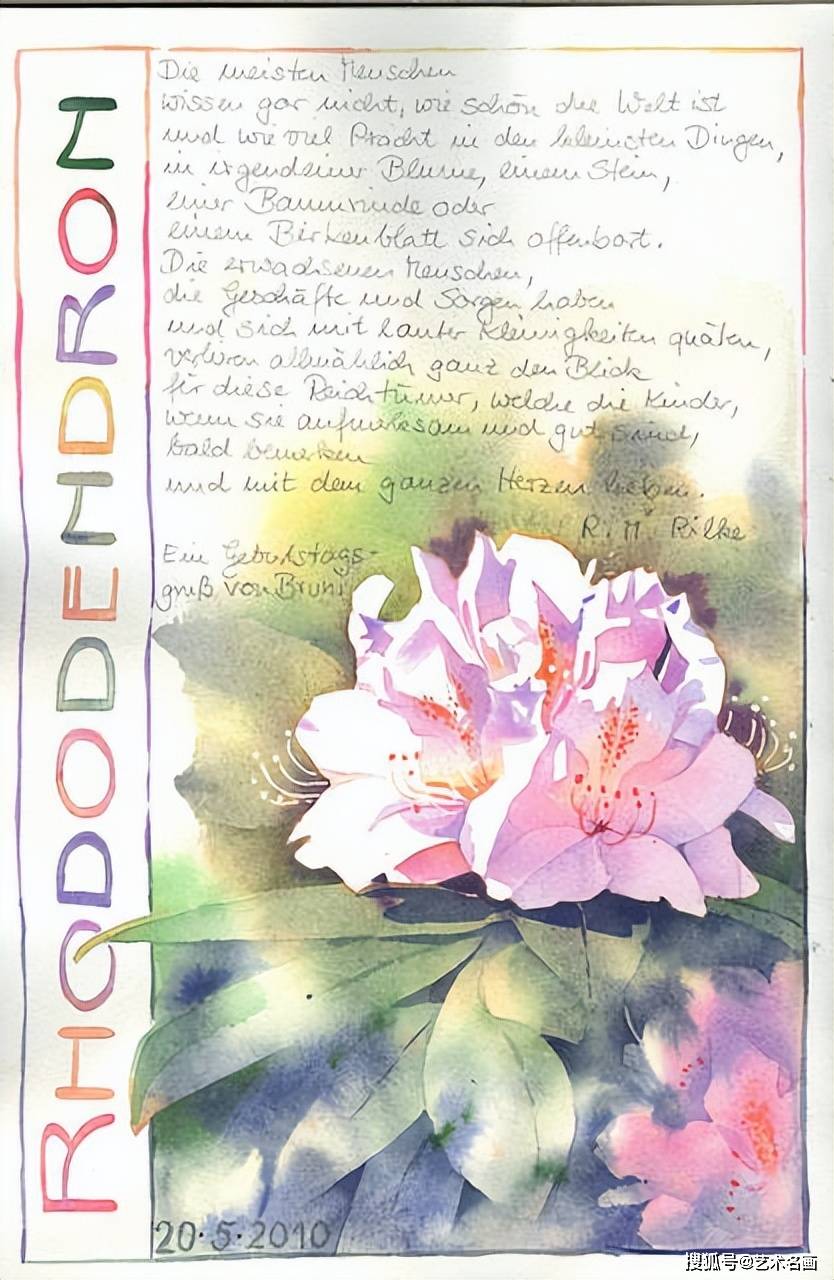 RHODODENDRON
Die meisten Menschen
wissen gar nicht, wie schön die Welt ist
und wie viel Pracht in den kleinsten Dingen,
in irgendeiner Blume, einem Stein,
einer Baumrinde oder
einem Birkenblatt sich offenbart.
Die erwachsenen Menschen,
die Geschäfte und Sorgen haben
und sich mit lauter Kleinigkeiten quälen,
verlieren allmählich ganz den Blick
für diese Reichtümer, welche die Kinder,
wenn sie aufmerksam und gut sind,
bald bemerken
und mit dem ganzen Herzen lieben.
R. M Rilke
Ein Geburtstags-
gruß von Bruni
20.5.2010
搜狐号@艺术名画